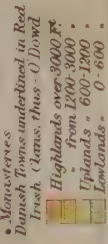 • Monasteries
Danish Towns underlined in Red
Irish Clans, thus - O'Dowd
Highlands over 3000 Ft
" from 1200-3000 "
Uplands " 600-1200 "
Lowlands " 0-600 "